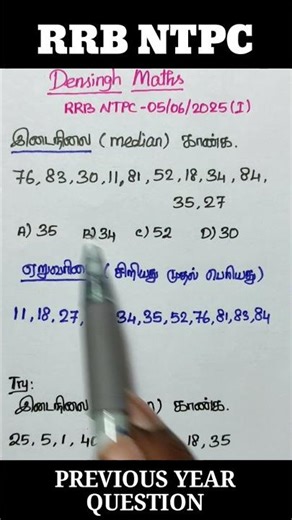 RRB NTPC
Densingh Maths
RRB NTPC-05/06/2025(I)
இடைநிலை (median) காண்க.
76, 83, 30, 11, 81, 52, 18, 34, 84,
35, 27
A) 35 B) 34 C) 52 D) 30
(சிறியது முதல் பெரியது)
11, 18, 27, 34, 35, 52, 76, 81, 83, 84
Try:
காண்க.
25, 5, 1, 18, 35
PREVIOUS YEAR
QUESTION